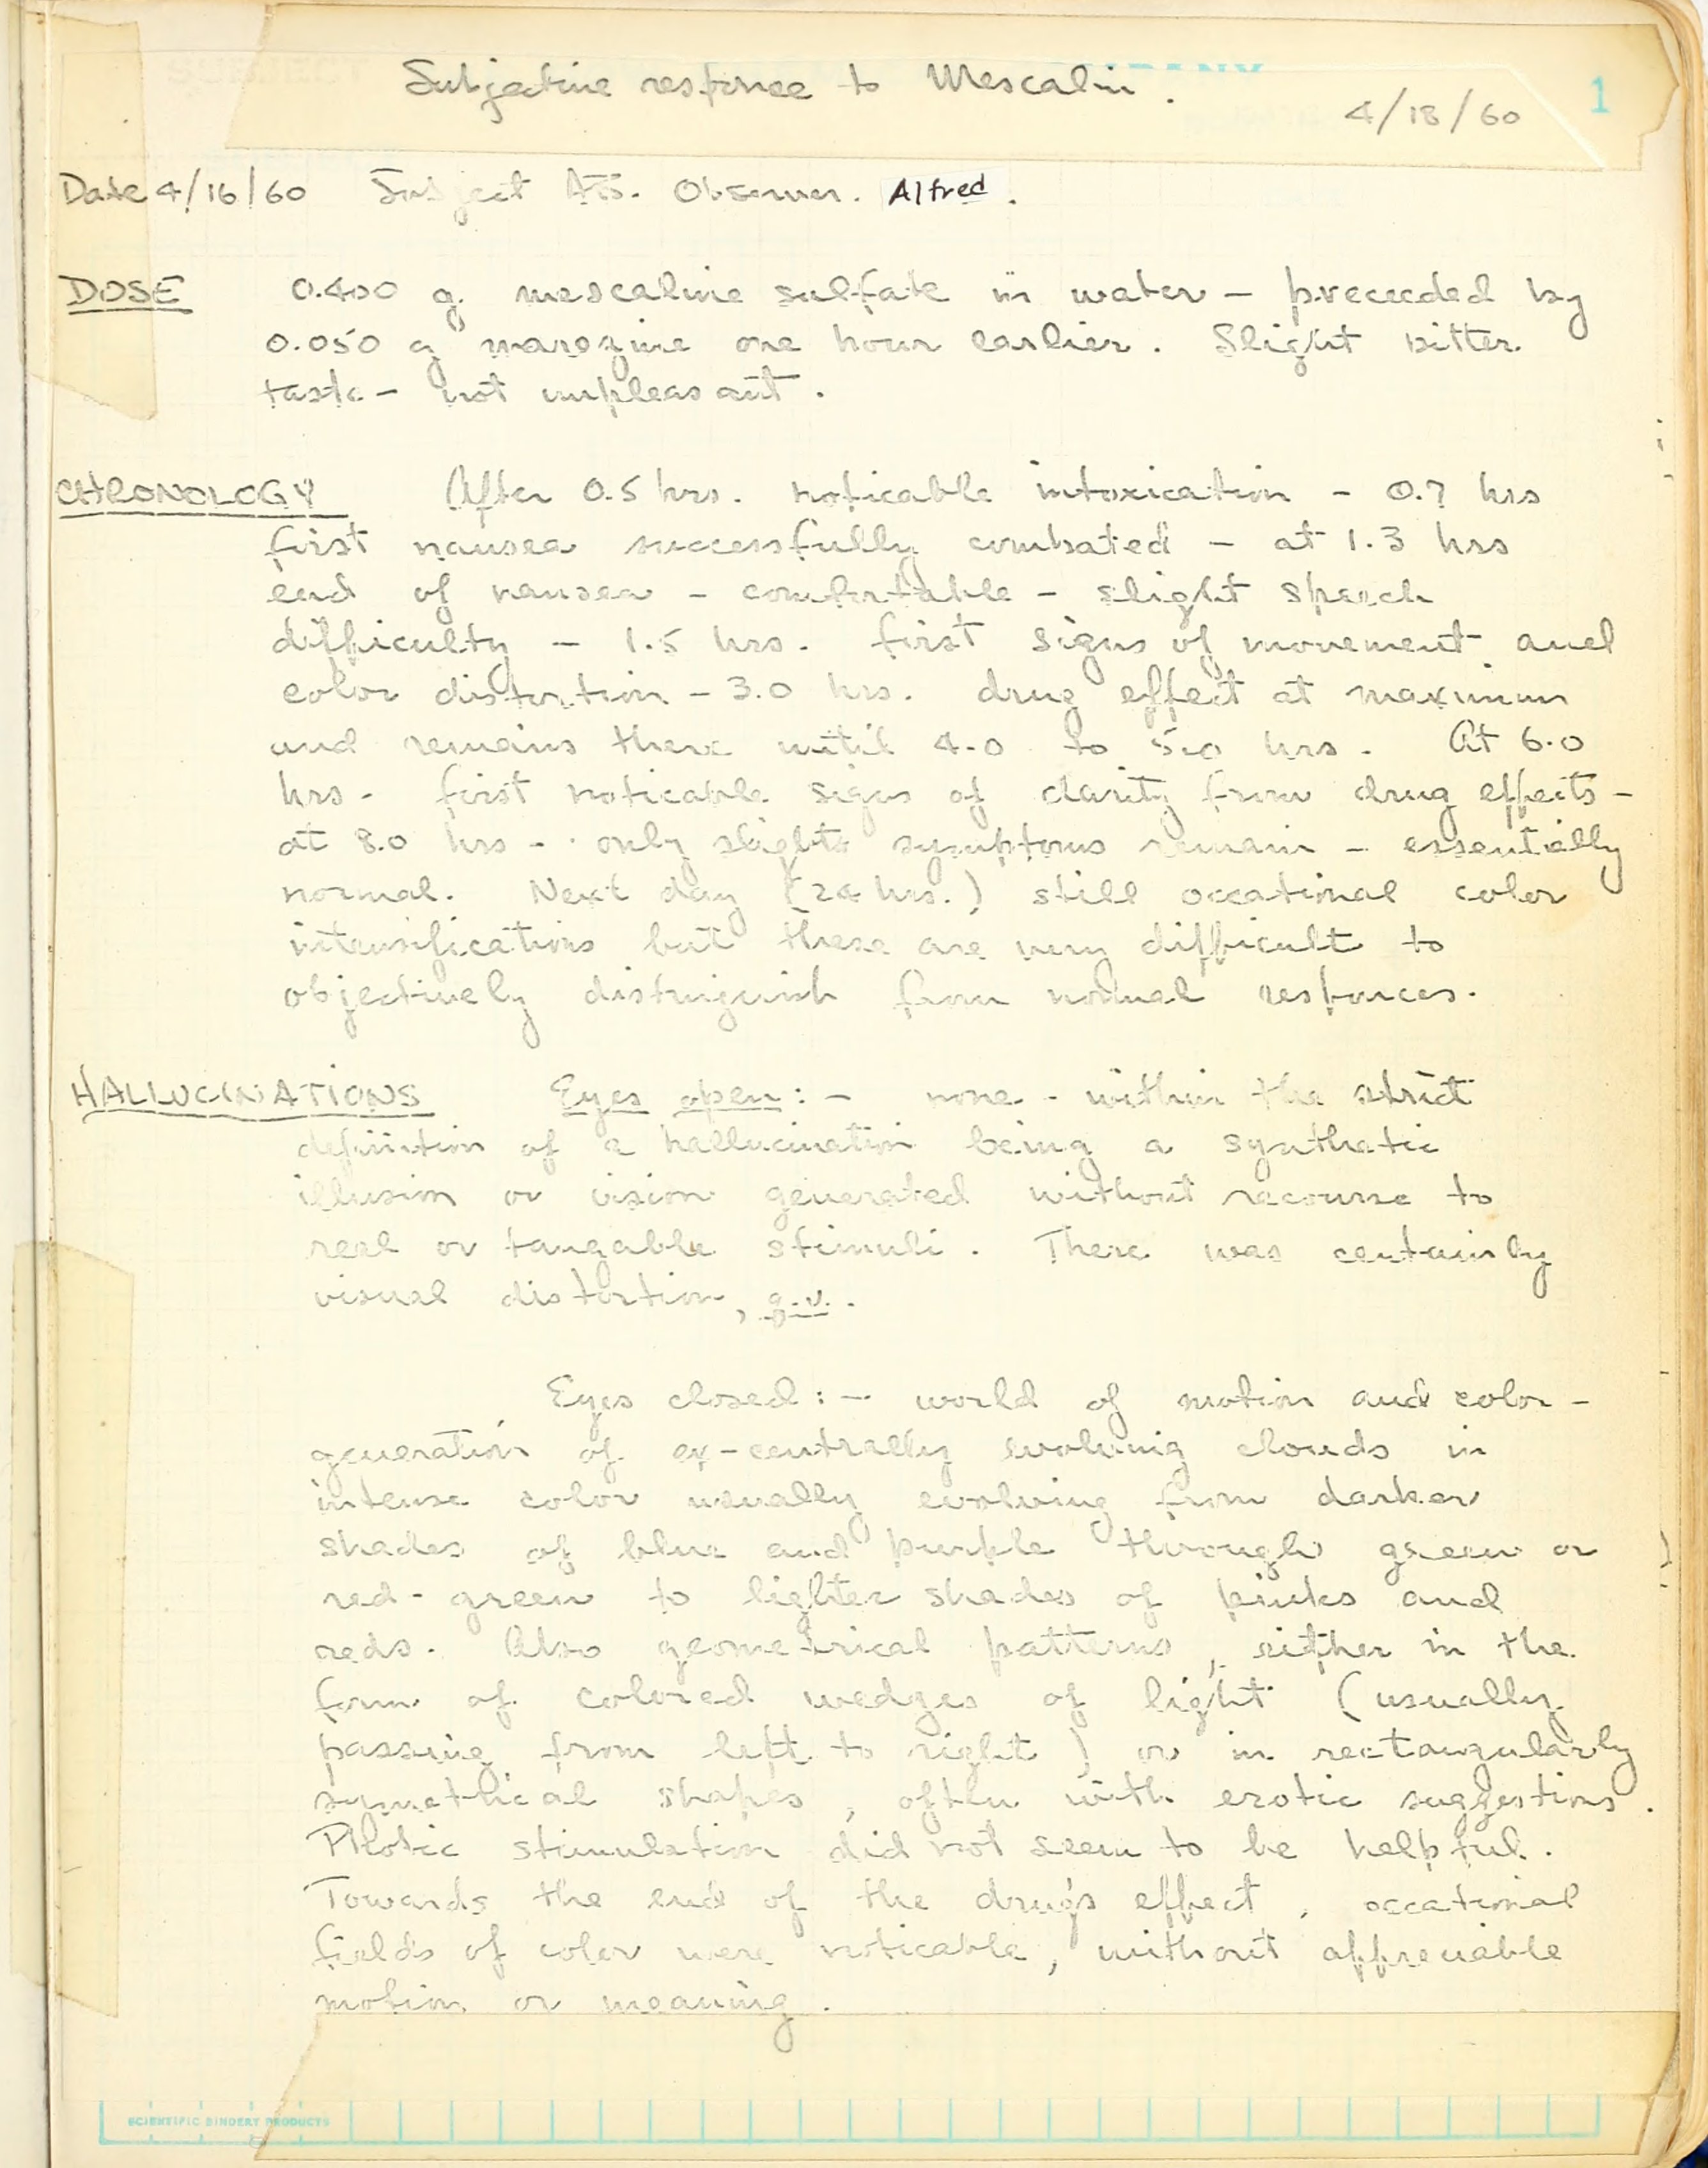 Subjective response to Mescalin.
4/18/60
1
Date 4/16/60 Subject ATS. Observer. Alfred.
DOSE 0.400 g. mescaline sulfate in water – preceeded by
0.050 g marezine one hour earlier. Slight bitter
taste – not unpleasant.
CHRONOLOGY After 0.5 hrs. noticable intoxication – 0.7 hrs
first nausea successfully combated – at 1.3 hrs
end of nausea – comfortable – slight speech
difficulty – 1.5 hrs. first signs of movement and
color distortion – 3.0 hrs. drug effect at maximum
and remains there until 4.0 to 5.0 hrs. At 6.0
hrs. first noticable signs of clarity from drug effects –
at 8.0 hrs – only slight symptoms remain – essentially
normal. Next day (24 hrs.) still occational color
intensifications but these are very difficult to
objectively distinguish from normal responces.
HALLUCINATIONS Eyes open: – none – within the strict
definition of a hallucination being a synthetic
illusion or vision generated without recourse to
real or tangable stimuli. There was certainly
visual distortion, q.v.
Eyes closed: – world of motion and color –
generation of ex-centrally evolving clouds in
intense color usually evolving from darker
shades of blue and purple through green or
red-green to lighter shades of pinks and
reds. Also geometrical patterns, either in the
form of colored wedges of light (usually
passing from left to right) or in rectangularly
symetrical shapes, often with erotic suggestions.
Photic stimulation did not seem to be helpful.
Towards the end of the drug's effect, occational
fields of color were noticable, without appreciable
motion or meaning.
SCIENTIFIC BINDERY PRODUCTS